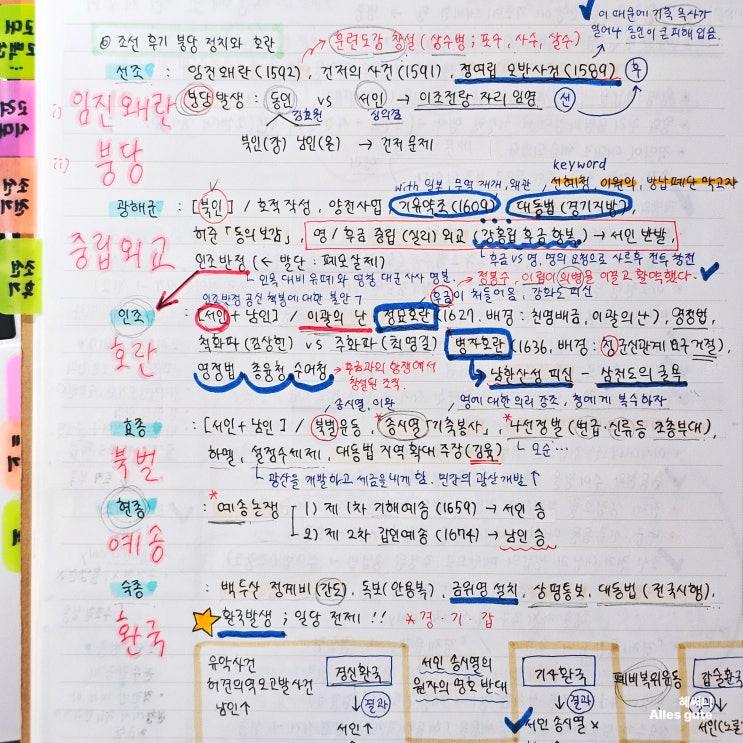 이 때문에 기축옥사가
일어나 동인이 큰 피해 입음.
⑥ 조선 후기 붕당 정치와 호란
훈련도감 창설 (삼수병; 포수, 사수, 살수)
선조 : 임진왜란(1592), 건저의 사건(1591), 정여립 모반사건(1589)
후
i) 임진왜란
붕당발생 : 동인 vs 서인 → 이조전랑 자리 임명
선
김효원 심의겸
ii) 붕당
북인(강) 남인(온) → 건저 문제
keyword
with 일본, 무역 재개, 왜관
선혜청, 이원익, 방납폐단 막고자
광해군 : [북인] / 호적 작성, 양전사업, 기유약조(1609), 대동법(경기지방),
중립외교
허준「동의보감」, 명/후금 중립(실리)외교 (강홍립 후금 항복) → 서인 반발,
후금 VS 명, 명의 요청으로 사르후 전투 참전
인조반정 (← 발단 : 폐모살제)
인목 대비 유폐와 영창 대군 사사 명분.
정봉수, 이립이 의병을 이끌고 활약했다.
인조반정 공신 책봉에 대한 불만
후금이 쳐들어옴, 강화도 피신
인조 : [서인 + 남인] / 이괄의 난, 정묘호란(1627, 배경 : 친명배금, 이괄의 난), 영정법,
호란
척화파(김상헌) vs 주화파(최명길) 병자호란 (1636, 배경 : 청 군신관계 요구 거절),
영정법, 총융청, 수어청
후금과의 항쟁에서
창설된 조직.
남한산성 피신 - 삼전도의 굴욕
송시열, 이완
명에 대한 의리 강조, 청에게 복수하자
효종 : [서인 + 남인] / 북벌운동, *송시열「기축봉사」, *나선정벌 (변급·신류 등 조총부대),
북벌
하멜, 설점수세제, 대동법 지역 확대 주장(김육)
모순…
광산을 개발하고 세금을 내게 함. 민간의 광산개발↑
현종 : *예송논쟁
예송
1) 제 1차 기해예송 (1659) → 서인 승
2) 제 2차 갑인예송 (1674) → 남인 승
숙종 : 백두산 정계비(간도), 독도(안용복), 금위영 설치, 상평통보, 대동법 (전국시행),
환국
환국발생 ; 일당 전제 !! *경·기·갑
유악사건
허견의 역모 고발사건
남인↑
경신환국
결과
서인↑
서인 송시열의
원자의 명호 반대
기사환국
결과
서인 송시열 ×
폐비복위운동
갑술환국
결과
서인(노론
헤써니
Alles gute